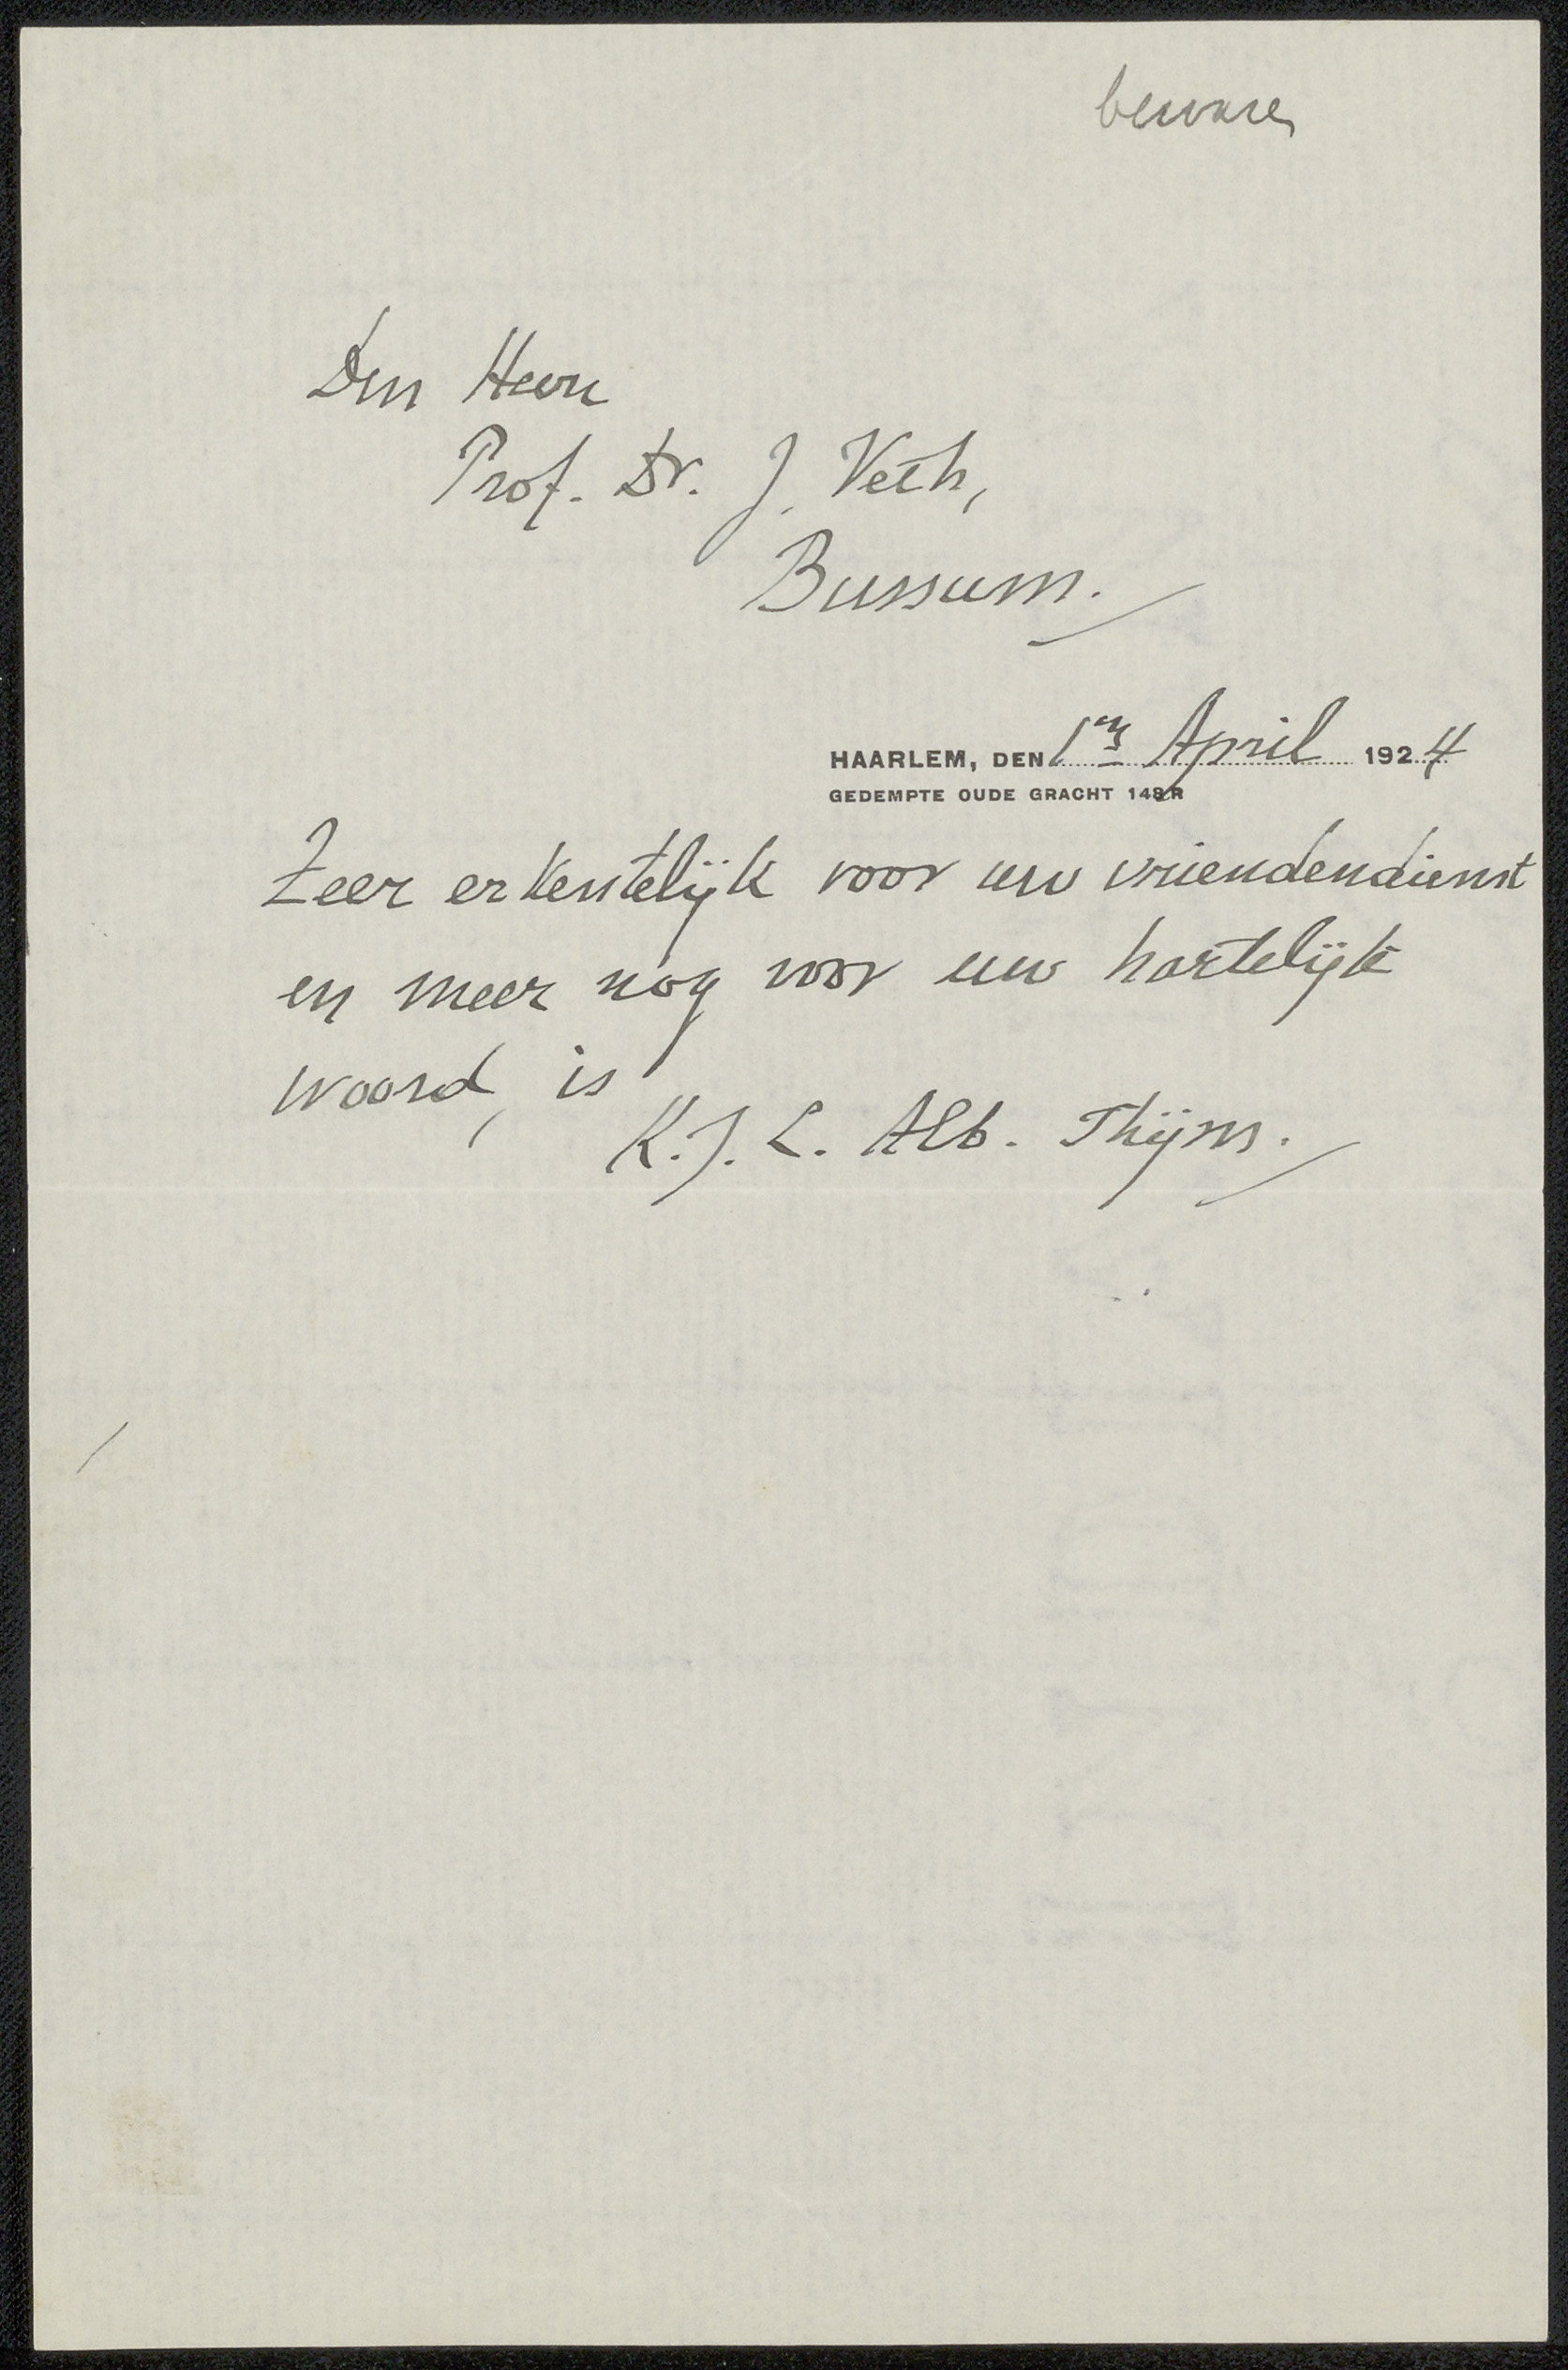 bewaren
Den Heere
Prof. Dr. J. Veth,
Bussum.
HAARLEM, DEN 1en April 1924
GEDEMPTE OUDE GRACHT 148R
Zeer erkentelijk voor uw vriendendienst
en meer nog voor uw hartelijk
woord, is
K. J. L. Alb. Thijm.